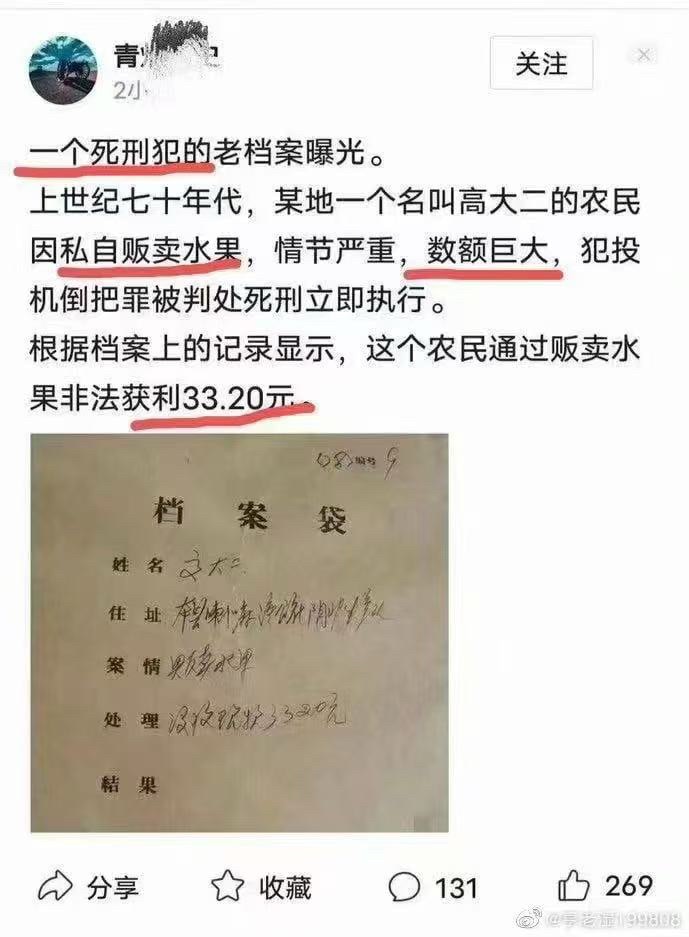 青
关注
2小
一个死刑犯的老档案曝光。
上世纪七十年代，某地一个名叫高大二的农民
因私自贩卖水果，情节严重，数额巨大，犯投
机倒把罪被判处死刑立即执行。
根据档案上的记录显示，这个农民通过贩卖水
果非法获利33.20元。
编号 9
档案袋
姓名 大二
住址
案情 贩卖水果
处理 没收现款33.20元
结果
分享
收藏
131
269
@李老湿199808